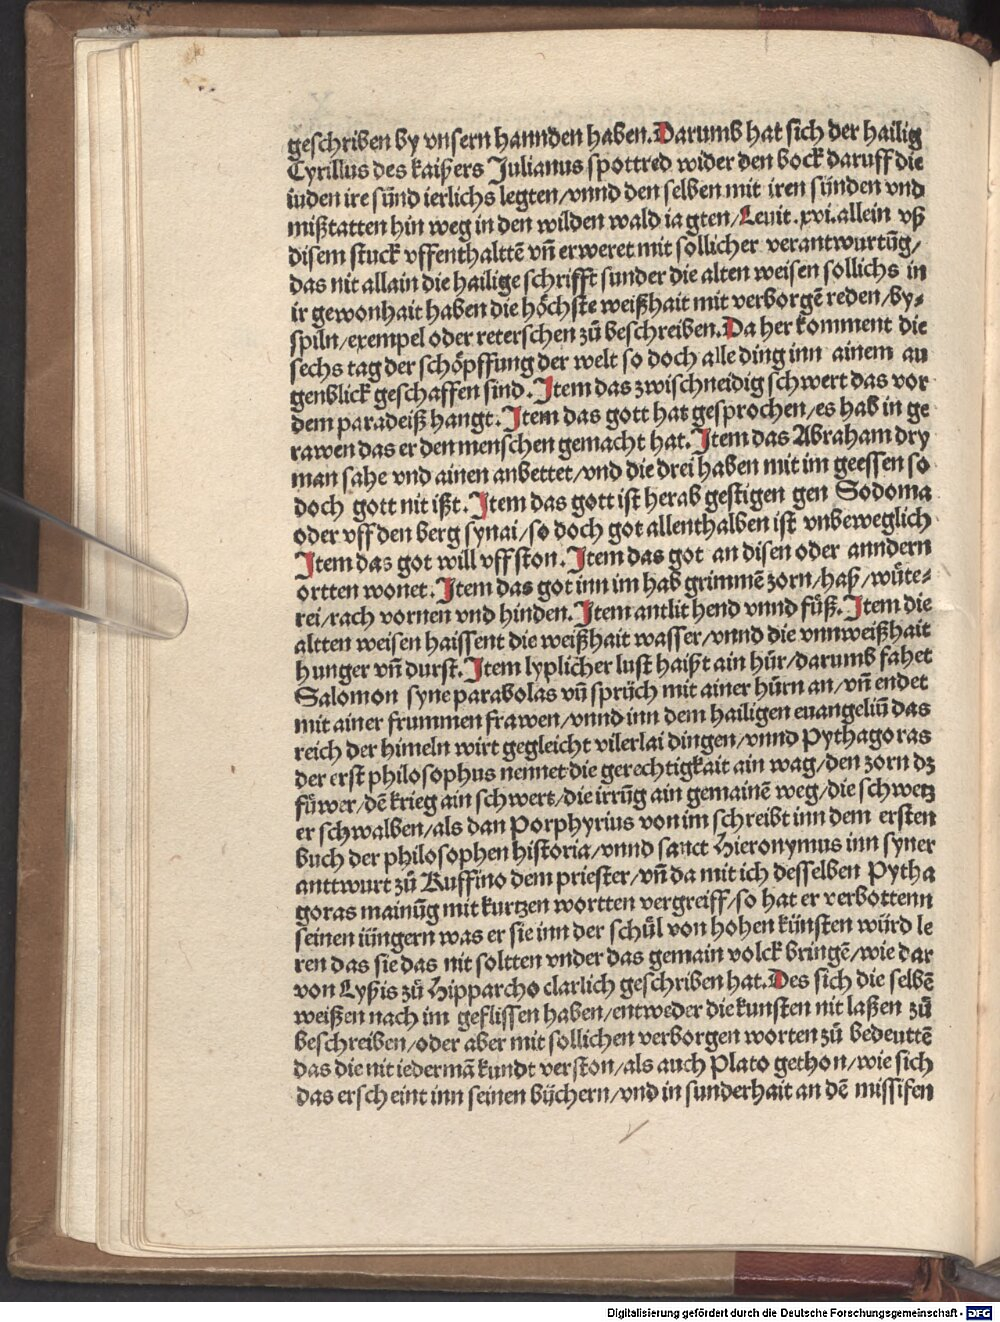 geschriben by vnsern hannden haben. Darumb hat sich der hailig
Cyrillus des kaißers Julianus spottred wider den bock daruff die
iuden ire sünd ierlichs legten/vnnd den selben mit iren sünden vnd
mißtatten hin weg in den wilden wald ia gten/Leuit. xvi. allein vß
disem stuck vffenthalttē vn̄ erweret mit sollicher verantwurtūg/
das nit allain die hailige schrifft sunder die alten weisen sollichs in
ir gewonhait haben die höchste weißhait mit verborgē reden/by⸗
spiln/exempel oder reterschen zů beschreiben. Da her komment die
sechs tag der schöpffung der welt so doch alle ding inn ainem au
genblick geschaffen sind. Item das zwischneidig schwert das vor
dem paradeiß hangt. Item das gott hat gesprochen/es hab in ge
rawen das er den menschen gemacht hat. Item das Abraham dry
man sahe vnd ainen anbettet/vnd die drei haben mit im geessen so
doch gott nit ißt. Item das gott ist herab gestigen gen Sodoma
oder vff den berg synai/so doch got allenthalben ist vnbeweglich
Item das got will vff ston. Item das got an disen oder anndern
ortten wonet. Item das got inn im hab grimmē zorn/haß/wüte⸗
rei/rach vornen vnd hinden. Item antlit hend vnnd füß. Item die
altten weisen haissent die weißhait wasser/vnnd die vnnweißhait
hunger vn̄ durst. Item lyplicher lust haißt ain hůr/darumb fahet
Salomon syne parabolas vn̄ sprüch mit ainer hůrn an/vn̄ endet
mit ainer frummen frawen/vnnd inn dem hailigen euangeliū das
reich der himeln wirt gegleicht vilerlai dingen/vnnd Pythagoras
der erst philosophus nennet die gerechtigkait ain wag/den zorn dz
füwer/dē krieg ain schwert/die irrūg ain gemainē weg/die schwetz
er schwalben/als dan Porphyrius von im schreibt inn dem ersten
buch der philosophen historia/vnnd sanct Hieronymus inn syner
anttwurt zů Ruffino dem priester/vn̄ da mit ich desselben Pytha
goras mainūg mit kurtzen wortten vergreiff/so hat er verbottenn
seinen iüngern was er sie inn der schůl von hohen künsten würd le
ren das sie das nit soltten vnder das gemain volck bringē/wie dar
von Lyßis zů Hipparcho clarlich geschriben hat. Des sich die selbē
weißen nach im geflissen haben/entweder die kunsten nit laßen zů
beschreiben/oder aber mit sollichen verborgen worten zů bedeuttē
das die nit iedermā kundt verston/als auch Plato gethon/wie sich
das erscheint inn seinen büchern/vnd in sunderhait an dē missifen
Digitalisierung gefördert durch die Deutsche Forschungsgemeinschaft - DFG